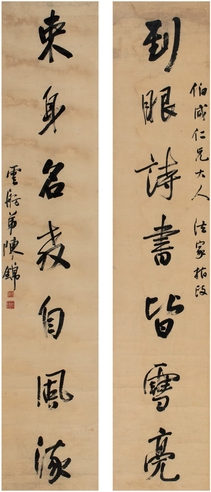 到眼詩書皆雪亮
伯咸仁兄大人 法家指政
束身名教自風流
雲舫弟陳錦